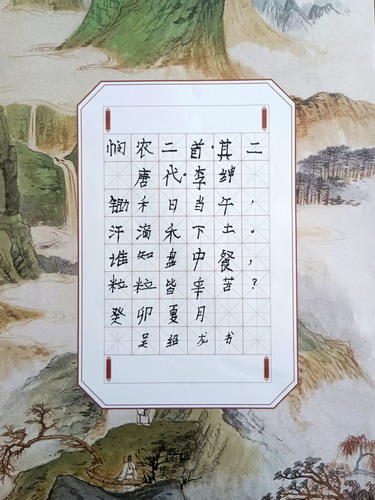 悯农二首·其二
唐代·李绅
锄禾日当午，
汗滴禾下土。
谁知盘中餐，
粒粒皆辛苦？
癸卯夏月
吴绍龙书